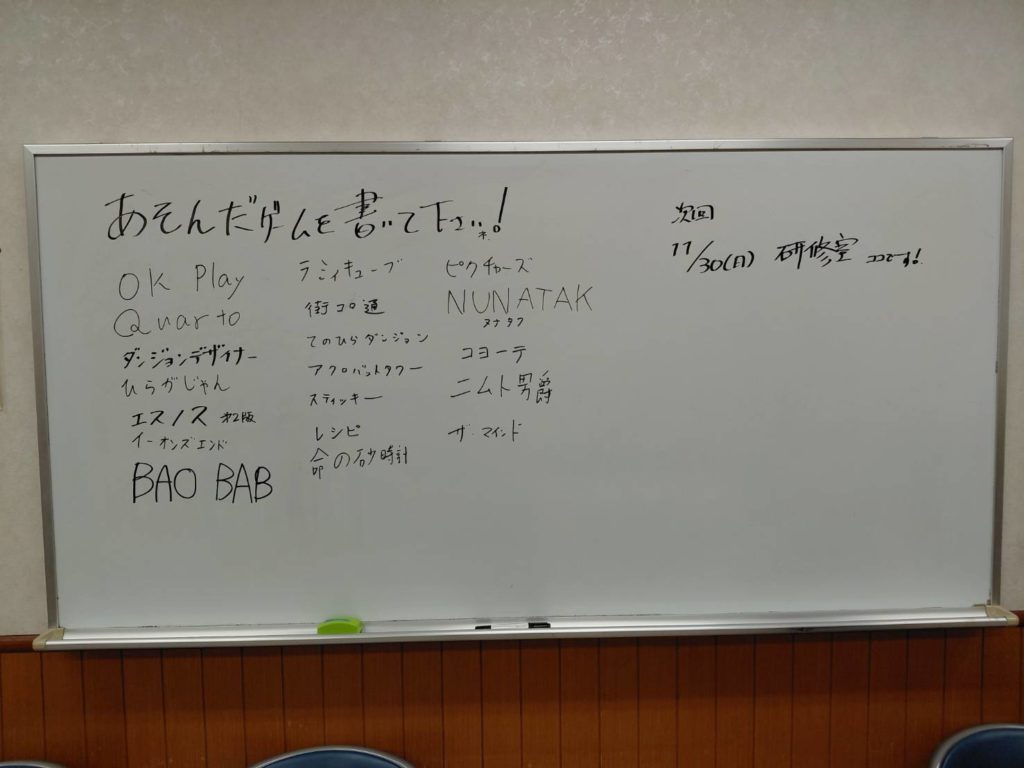 あそんだゲームを書いて下さいネ!
OK Play
Quarto
ダンジョンデザイナー
ひらがじゃん
エスノス 第2版
イーオンズエンド
BAO BAB
ラミィキューブ
街コロ通
てのひらダンジョン
アクロバットタワー
スティッキー
レシピ
命の砂時計
ピクチャーズ
NUNATAK
ヌナタク
コヨーテ
ニムト男爵
ザ・マインド
次回
11/30(日) 研修室 ココです!